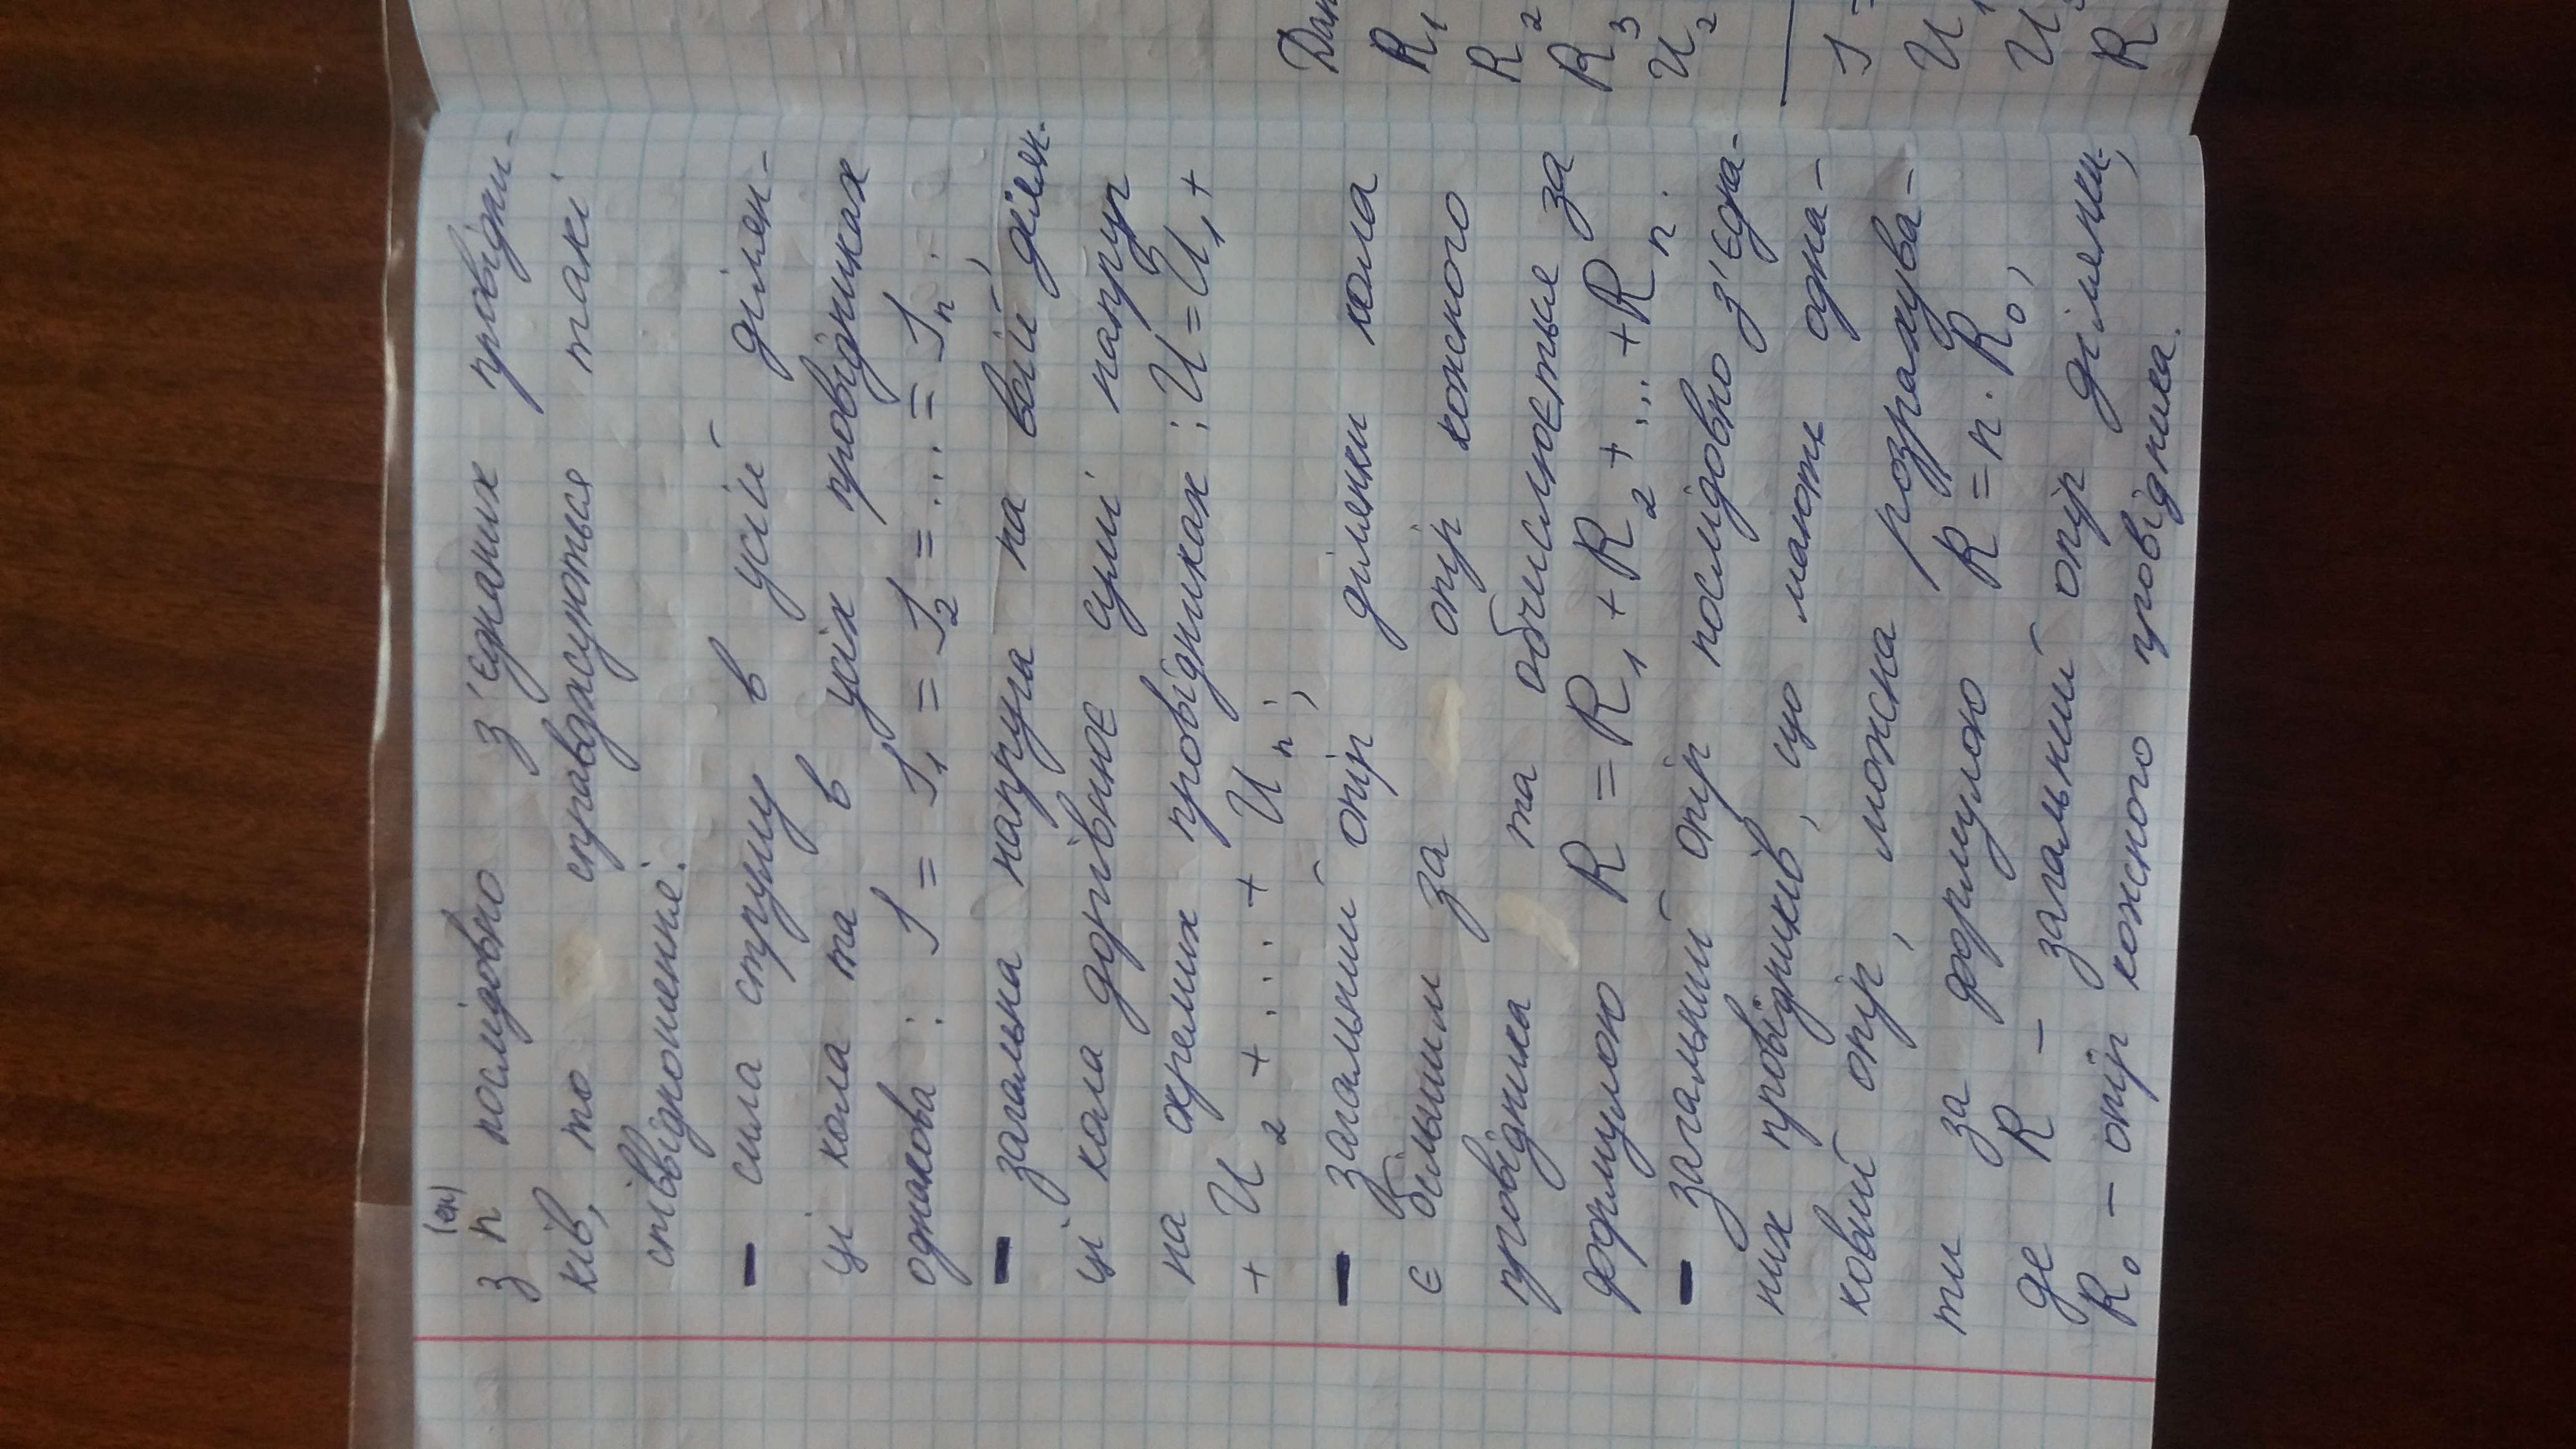 (ен)
з n послідовно з'єднаних провідни-
ків, то справджуються такі
співвідношення:
- сила струму в усій ділян-
ці кола та в усіх провідниках
однакова : I = I₁ = I₂ = ... = Iₙ ;
- загальна напруга на всій ділян-
ці кола дорівнює сумі напруг
на окремих провідниках : U = U₁ +
+ U₂ + ... + Uₙ ;
- загальний опір ділянки кола
є більшим за опір кожного
провідника та обчислюється за
формулою R = R₁ + R₂ + ... + Rₙ .
- загальний опір послідовно з'єдна-
них провідників, що мають одна-
ковий опір, можна розрахува-
ти за формулою R = n · R₀,
де R - загальний опір ділянки,
R₀ - опір кожного провідника.
R₁
R₂
R₃
U₂
I
U
U
R